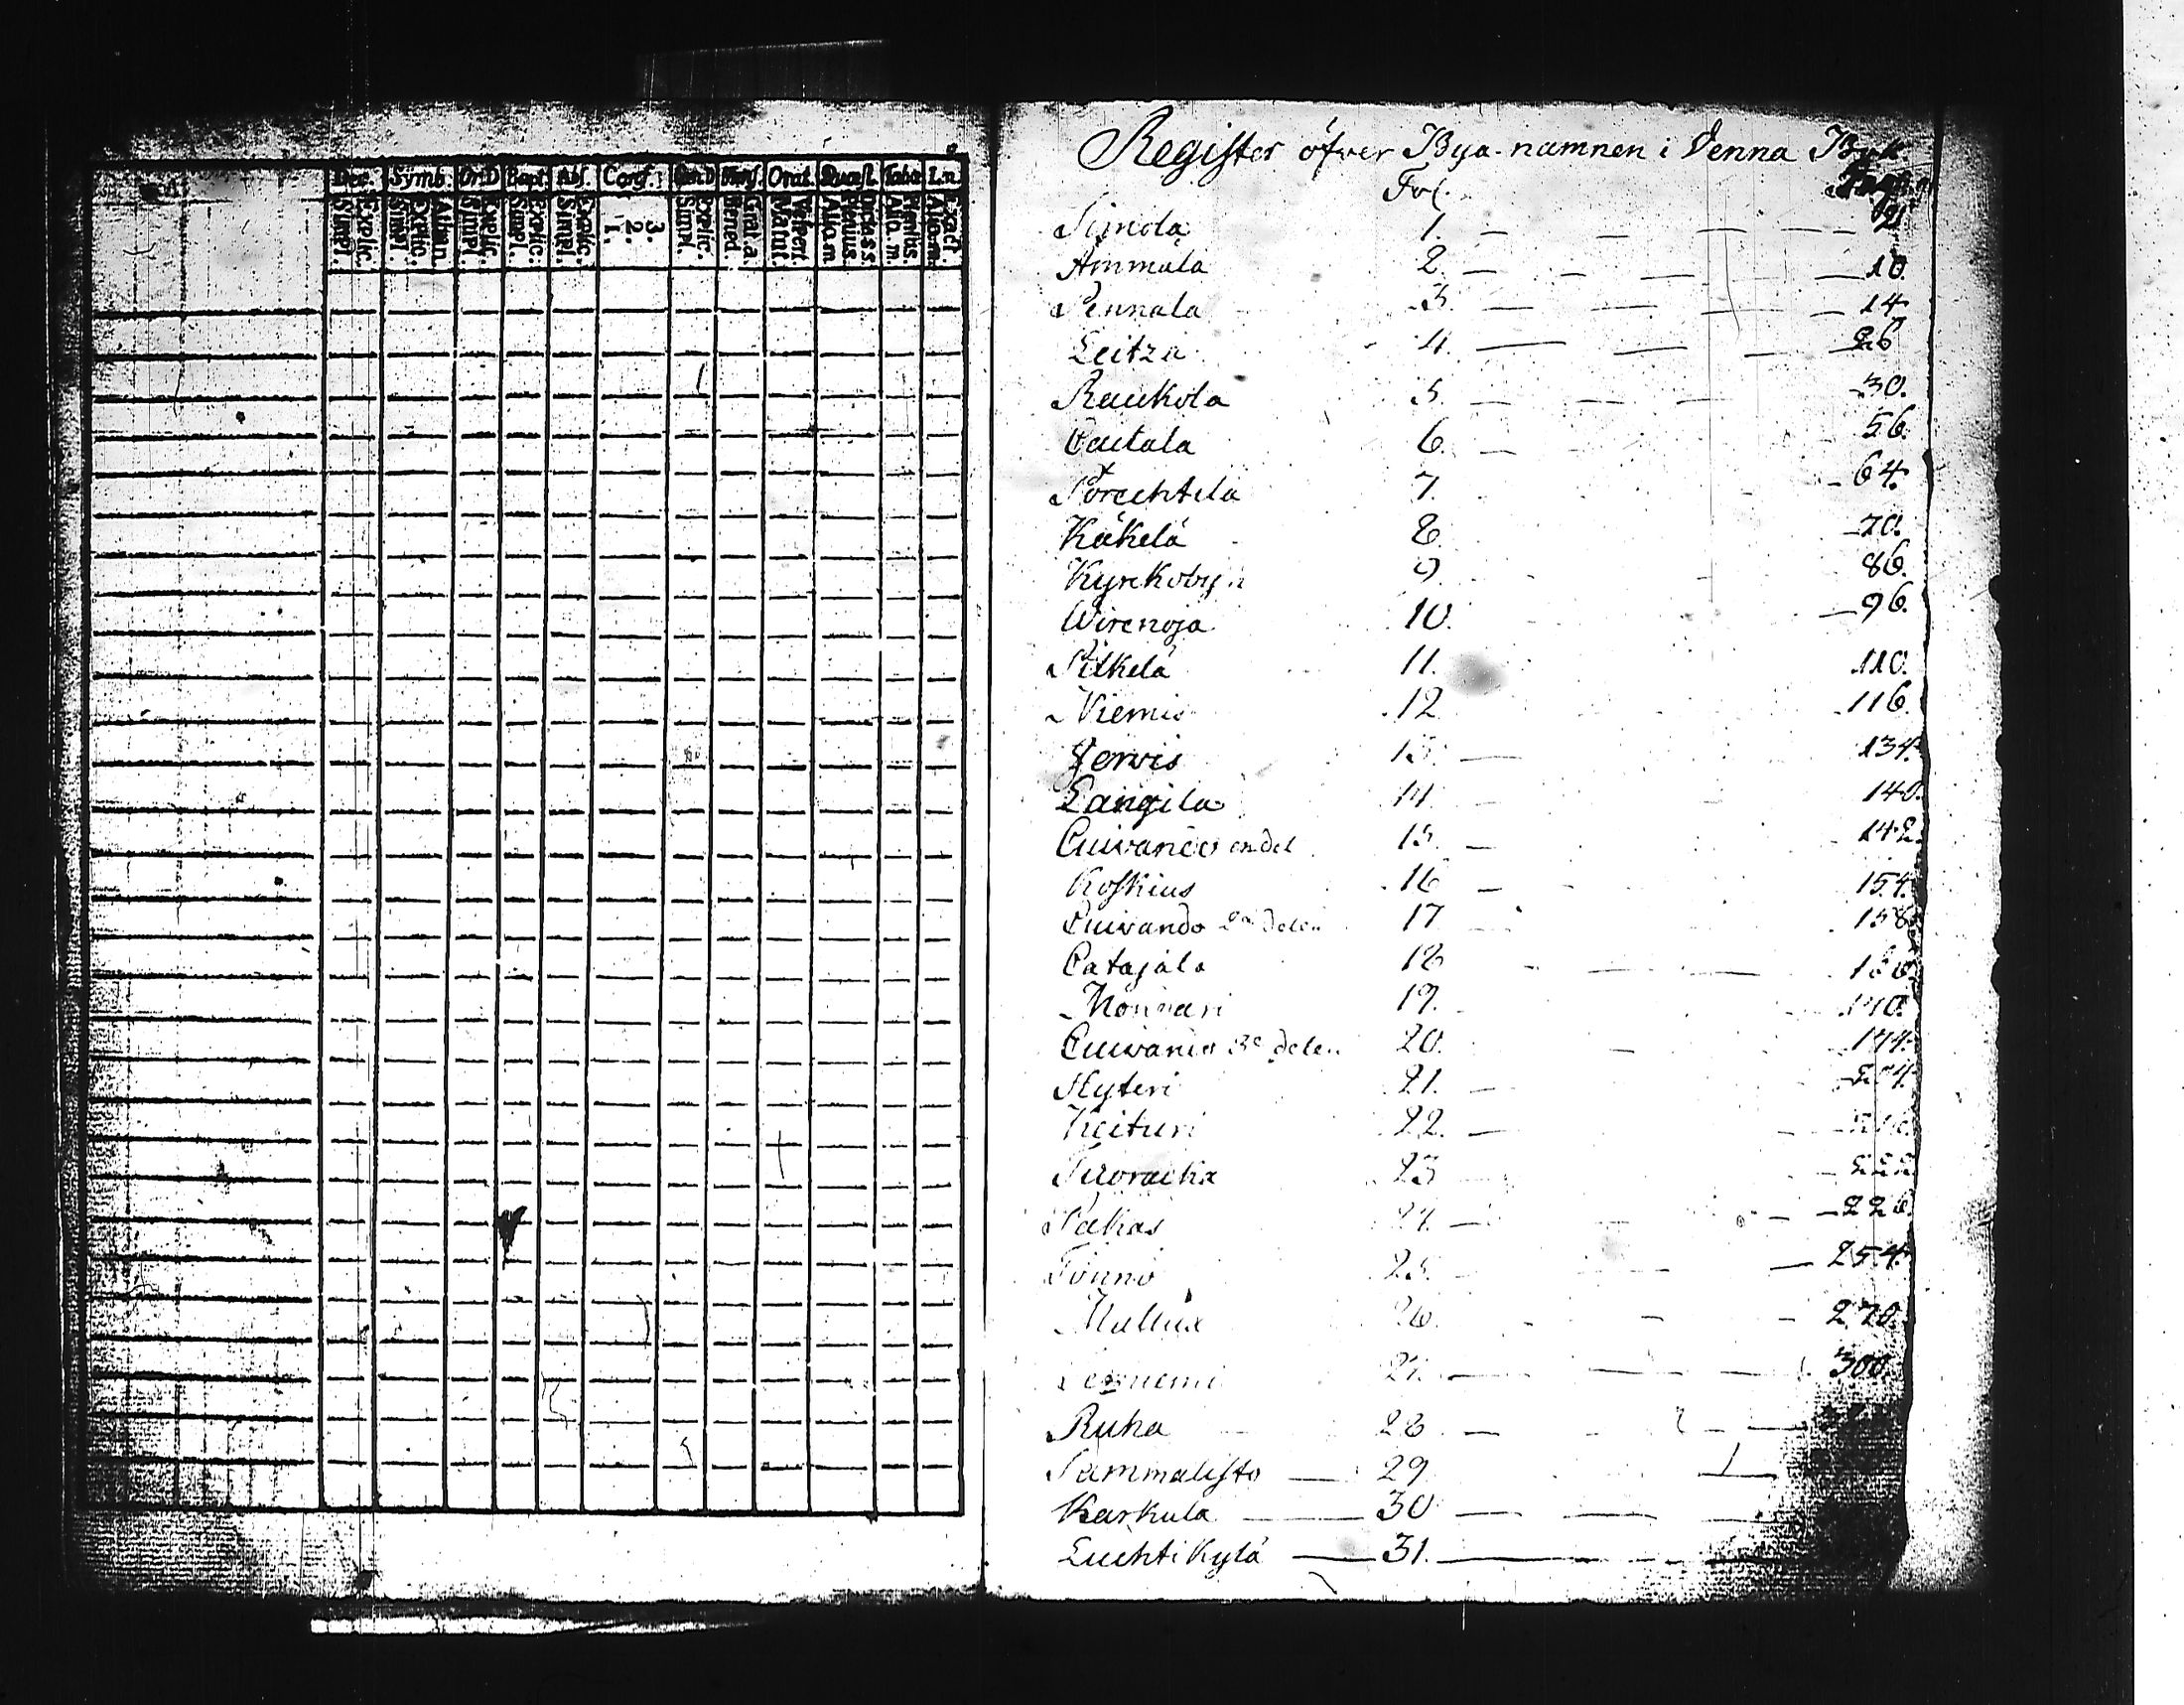 Dec. Symb. Or.D Bapt. Abs. Conf. Cœn.D Mens. Orat. Quæst. Taba L.n.
Explic. Simpl. Athan. Explic. Simpl. Explic. Simpl. Explic. Simpl. Explic. Simpl. 3. 2. 1. Explic. Simpl. Grat. a. Bened. Vespert. Matut. Dicta s.s. Plenius. Aliq. m. Plenius. Aliq. m. Exact. Aliq. m.
Register öfver Bya-namnen i Denna Bok
Fol.
Simola 1.
Ammala 2. 10.
Pennala 3. 14
Leitza 4. 26
Raukola 5. 30.
Cautala 6. 56.
Torechtila 7. 64.
Käkelä 8. 70.
Kyrkobyn 9. 86.
Wirenoja 10. 96.
Pilkelä 11. 110.
Niemis 12. 116.
Jerwis 13. 134.
Langila 14. 140.
Cuivanes en del 15. 142.
Koskius 16 154.
Cuivando 2a delen 17 158
Catajala 18
Monnari 19. 170.
Cuivanio 3e delen 20. 174.
Hyteri 21.
Keituri 22.
Tuoracka 23 222
Pakas 24. 226
Tönnö 25. 254.
Mallua 26. 270.
27. 300.
Ruha 28
Sammalisto 29
Karkula 30
Luchtikylä 31.